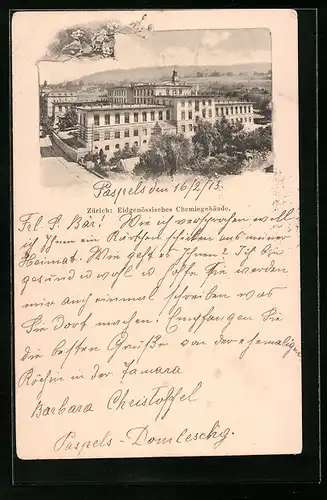 Paspels den 16/2/13.
Zürich: Eidgenössisches Chemiegebäude.
Frl. P. Bär! Wie ich versprochen will
ich Ihnen ein Kärtchen schicken aus meiner
Heimat. Wie geht es Ihnen? Ich bin
gesund u wohl u hoffe Sie werden
mir auch einmal schreiben was
Sie dort machen. Empfangen Sie
die besten Grüße von der ehemaligen
Köchin in der Tamara
Barbara Christoffel
Paspels - Domleschg.